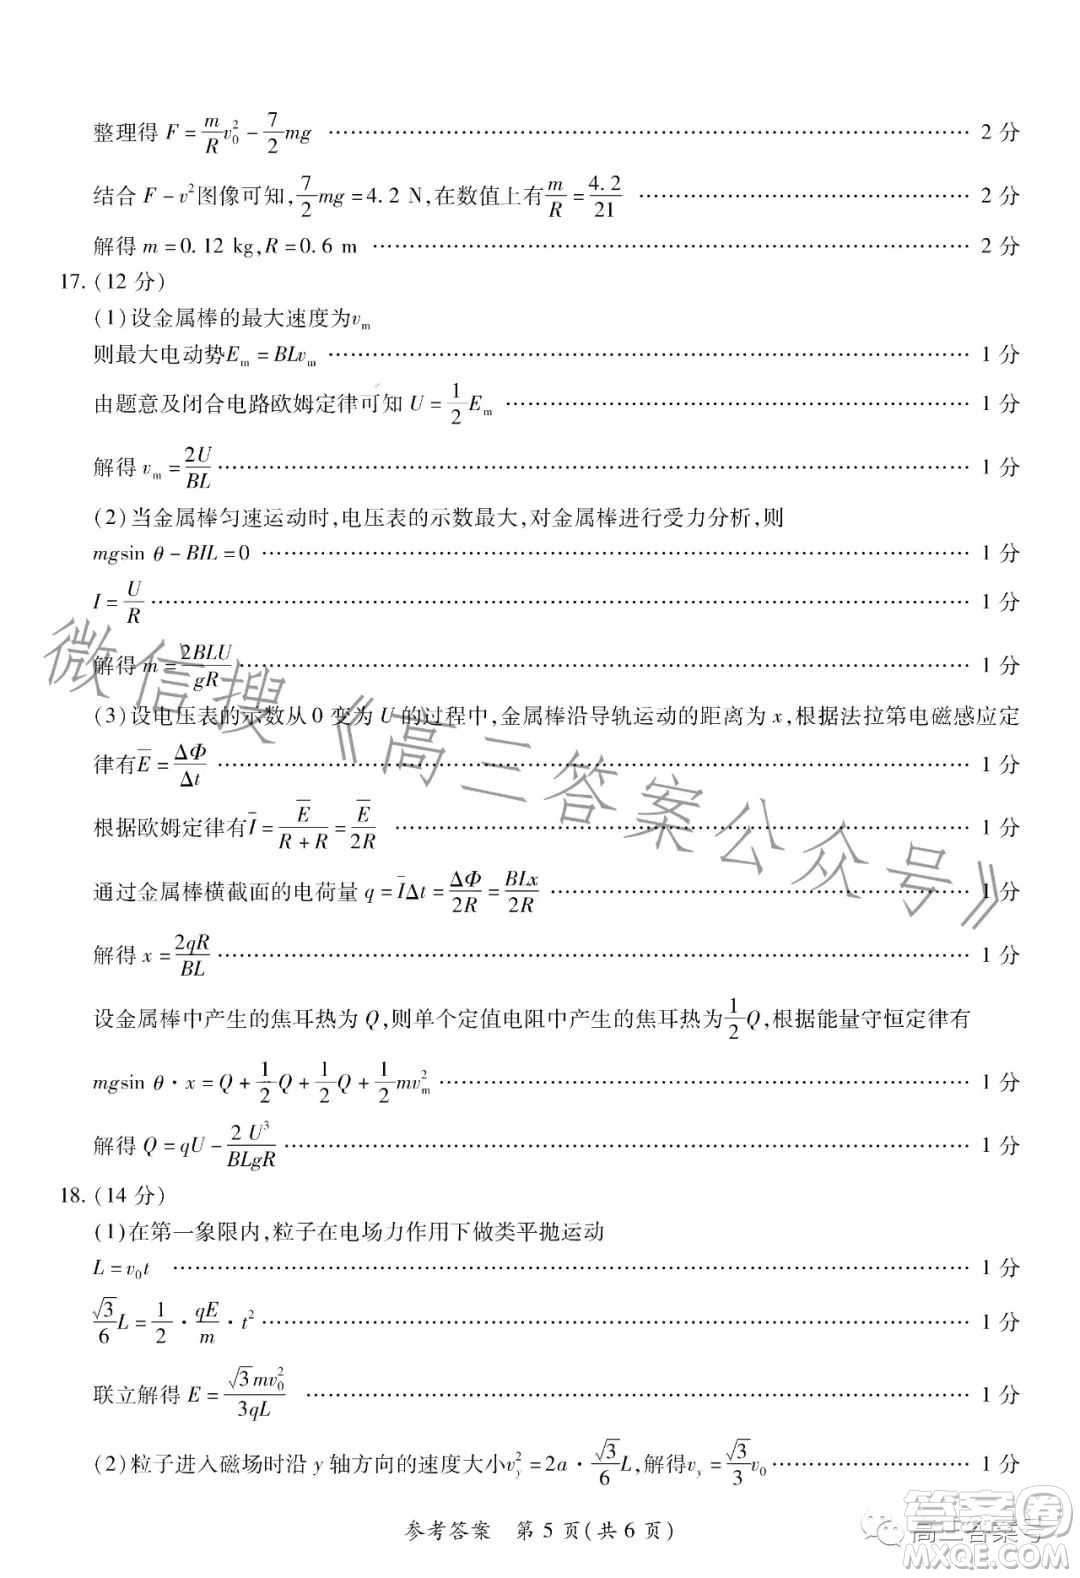 整理得 F = m/R v₀² − 7/2 mg …… 2 分
结合 F − v² 图像可知, 7/2 mg = 4.2 N, 在数值上有 m/R = 4.2/21 …… 2 分
解得 m = 0.12 kg, R = 0.6 m …… 2 分
17. (12 分)
(1) 设金属棒的最大速度为 vₘ
则最大电动势 Eₘ = BLvₘ …… 1 分
由题意及闭合电路欧姆定律可知 U = 1/2 Eₘ …… 1 分
解得 vₘ = 2U/BL …… 1 分
(2) 当金属棒匀速运动时, 电压表的示数最大, 对金属棒进行受力分析, 则
mgsin θ − BIL = 0 …… 1 分
I = U/R …… 1 分
解得 m = 2BLU/gR …… 1 分
(3) 设电压表的示数从 0 变为 U 的过程中, 金属棒沿导轨运动的距离为 x, 根据法拉第电磁感应定
律有 E̅ = ΔΦ/Δt …… 1 分
根据欧姆定律有 I̅ = E̅/(R + R) = E̅/2R …… 1 分
通过金属棒横截面的电荷量 q = I̅Δt = ΔΦ/2R = BLx/2R …… 1 分
解得 x = 2qR/BL …… 1 分
设金属棒中产生的焦耳热为 Q, 则单个定值电阻中产生的焦耳热为 1/2 Q, 根据能量守恒定律有
mgsin θ · x = Q + 1/2 Q + 1/2 Q + 1/2 mvₘ² …… 1 分
解得 Q = qU − 2U³/BLgR …… 1 分
18. (14 分)
(1) 在第一象限内, 粒子在电场力作用下做类平抛运动
L = v₀t …… 1 分
√3/6 L = 1/2 · qE/m · t² …… 1 分
联立解得 E = √3mv₀²/3qL …… 1 分
(2) 粒子进入磁场时沿 y 轴方向的速度大小 v_y² = 2a · √3/6 L, 解得 v_y = √3/3 v₀ …… 1 分
参考答案 第 5 页(共 6 页)
微信搜《高三答案公众号》
高三答案号
答案圈
MXQE.COM